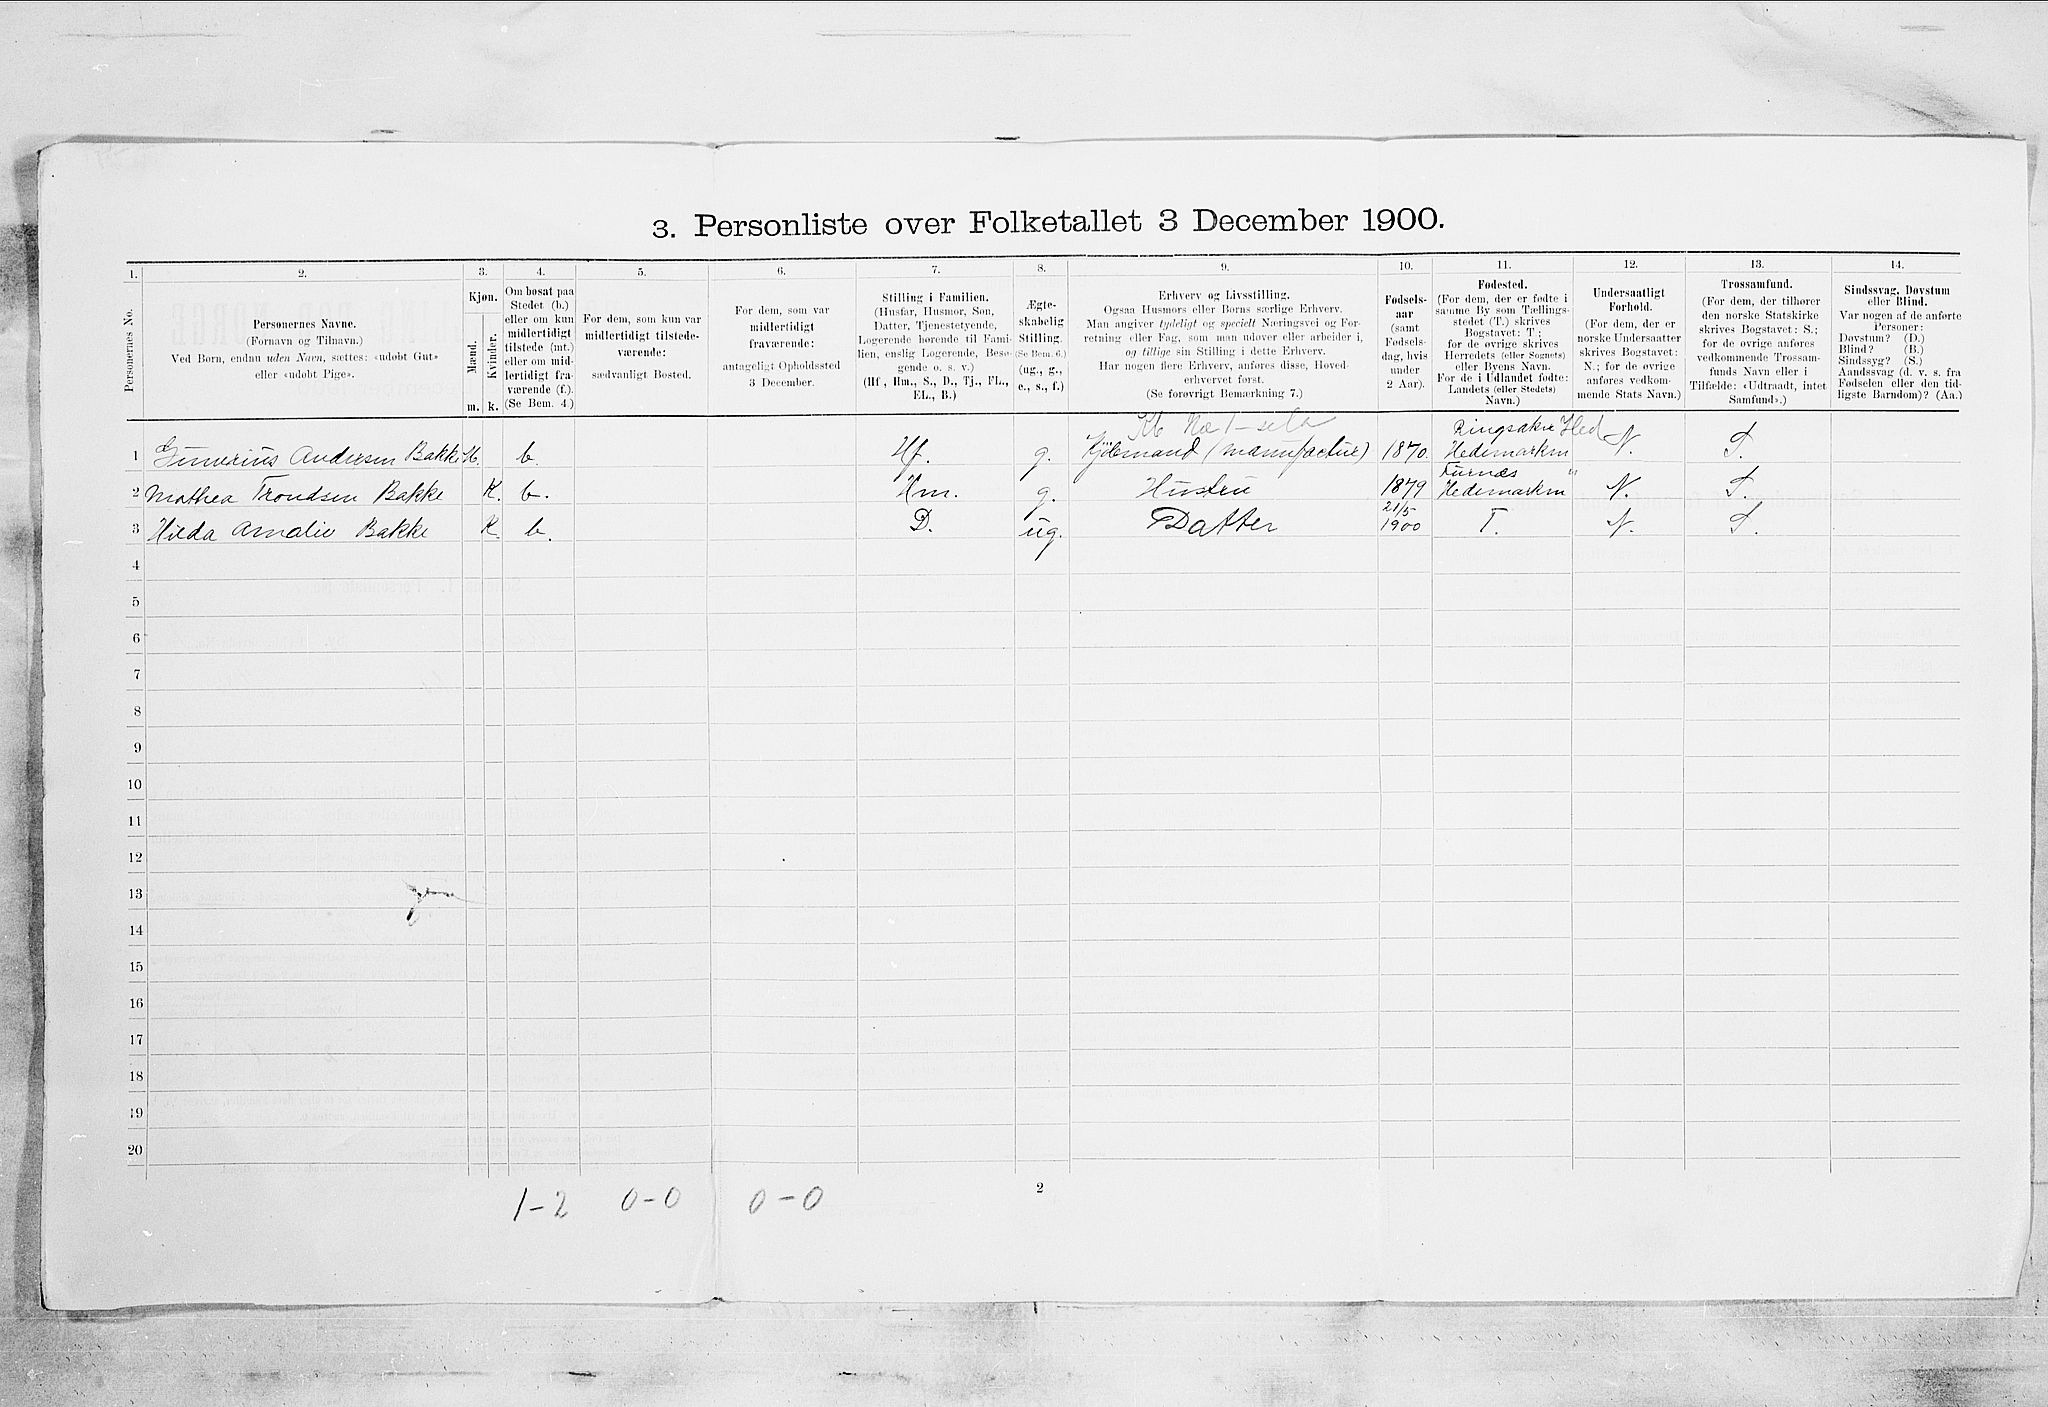 3. Personliste over Folketallet 3 December 1900.
1. 2. 3. 4. 5. 6. 7. 8. 9. 10. 11. 12. 13. 14.
Personernes No.
Personernes Navne.
(Fornavn og Tilnavn.)
Ved Børn, endnu uden Navn, sættes: «udøbt Gut»
eller «udøbt Pige».
Kjøn.
Mænd.
Kvinder.
m. k.
Om bosat paa
Stedet (b.)
eller om kun
midlertidigt
tilstede (mt.)
eller om mid-
lertidigt fra-
værende (f.).
(Se Bem. 4.)
For dem, som kun var
midlertidigt tilstede-
værende:
sædvanligt Bosted.
For dem, som var
midlertidigt
fraværende:
antageligt Opholdssted
3 December.
Stilling i Familien.
(Husfar, Husmor, Søn,
Datter, Tjenestetyende,
Logerende hørende til Fami-
lien, enslig Logerende, Besø-
gende o. s. v.)
(Hf., Hm., S., D., Tj., FL.,
EL., B.)
Ægte-
skabelig
Stilling.
(Se Bem. 6.)
(ug., g.,
e., s., f.)
Erhverv og Livsstilling.
Ogsaa Husmors eller Børns særlige Erhverv.
Man angiver tydeligt og specielt Næringsvei og For-
retning eller Fag, som man udøver eller arbeider i,
og tillige sin Stilling i dette Erhverv.
Har nogen flere Erhverv, anføres disse, Hoved-
erhvervet først.
(Se forøvrigt Bemærkning 7.)
Fødsels-
aar
(samt
Fødsels-
dag, hvis
under
2 Aar).
Fødested.
(For dem, der er fødte i
samme By som Tællings-
stedet (T.) skrives
Bogstavet: T.;
for de øvrige skrives
Herredets (eller Sognets)
eller Byens Navn.
For de i Udlandet fødte:
Landets (eller Stedets)
Navn.)
Undersaatligt
Forhold.
(For dem, der er
norske Undersaatter
skrives Bogstavet:
N.; for de øvrige
anføres vedkom-
mende Stats Navn.)
Trossamfund.
(For dem, der tilhører
den norske Statskirke
skrives Bogstavet: S.;
for de øvrige anføres
vedkommende Trossam-
funds Navn eller i
Tilfælde: «Udtraadt, intet
Samfund».)
Sindssvag, Døvstum
eller Blind.
Var nogen af de anførte
Personer:
Døvstum? (D.)
Blind? (B.)
Sindssyg? (S.)
Aandssvag (d. v. s. fra
Fødselen eller den tid-
ligste Barndom)? (Aa.)
Ringsaker Hed
1 Gunerius Andersen Bakke M. b. Hf. g. Kjøbmand (manufactur) 1870. Hedemarken N. S.
Furnæs "
2 Mathea Trondsen Bakke K. b. Hm. g. Hustru 1879 Hedemarken N. S.
21/5
3 Hilda Amalie Bakke K. b. D. ug. Datter 1900 T. N. S.
4
5
6
7
8
9
10
11
12
13
14
15
16
17
18
19
20
1-2 0-0 0-0
2